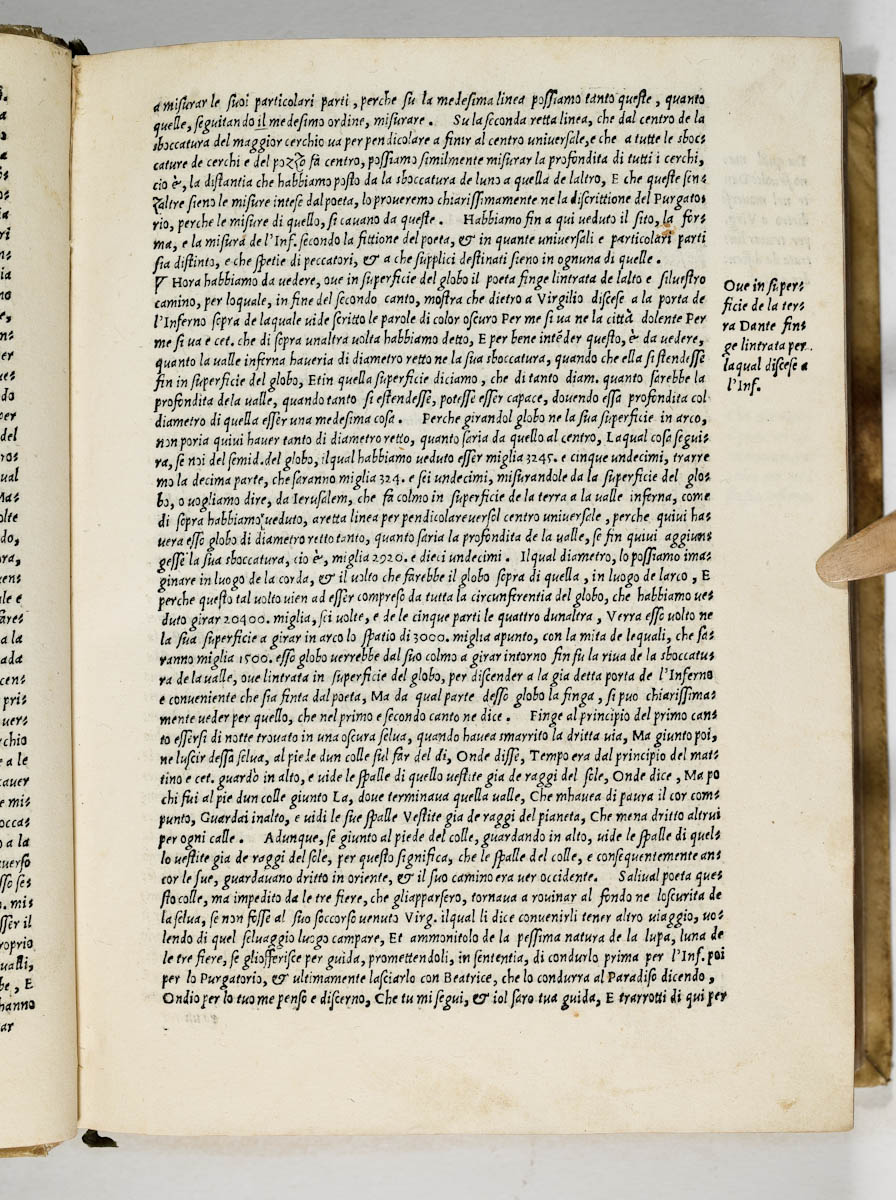 a misurar le suoi particolari parti, perche su la medesima linea possiamo tanto queste, quanto
quelle, seguitando il medesimo ordine, misurare. Su la seconda retta linea, che dal centro de la
sboccatura del maggior cerchio va per pendicolare a finir al centro universale, e che a tutte le sboc=
cature de cerchi e del pozzo fa centro, possiamo similmente misurar la profondita di tutti i cerchi,
cio è, la distantia che habbiamo posto da la sboccatura de luno a quella de laltro, E che queste sen=
zaltre sieno le misure intese dal poeta, lo proveremo chiarissimamente ne la discrittione del Purgato=
rio, perche le misure di quello, si cavano da queste. Habbiamo fin a qui veduto il sito, la for=
ma, e la misura de l'Inf. secondo la fittione del poeta, & in quante universali e particolari parti
sia distinto, e che spetie di peccatori, & a che supplici destinati sieno in ognuna di quelle.
Hora habbiamo da vedere, ove in superficie del globo il poeta finge lintrata de lalto e silvestro
camino, per loquale, in fine del secondo canto, mostra che dietro a Virgilio discese a la porta de
l'Inferno sopra de laquale vide scritto le parole di color oscuro Per me si va ne la città dolente Per
me si va e cet. che di sopra unaltra volta habbiamo detto, E per bene intēder questo, è da vedere,
quanto la valle inferna haveria di diametro retto ne la sua sboccatura, quando che ella si stendesse
fin in superficie del globo, Et in quella superficie diciamo, che di tanto diam. quanto sarebbe la
profondita de la valle, quando tanto si estendesse, potesse esser capace, dovendo essa profondita col
diametro di quella esser una medesima cosa. Perche girandol globo ne la sua superficie in arco,
non poria quivi haver tanto di diametro retto, quanto saria da quello al centro, Laqual cosa segui=
ra, se noi del semid. del globo, ilqual habbiamo veduto esser miglia 3245. e cinque undecimi, trarre
mo la decima parte, che saranno miglia 324. e sei undecimi, misurandole da la superficie del glo=
bo, o vogliamo dire, da Ierusalem, che fa colmo in superficie de la terra a la valle inferna, come
di sopra habbiamo veduto, a retta linea per pendicolare versol centro universale, perche quivi ha=
vera esso globo di diametro retto tanto, quanto saria la profondita de la valle, se fin quivi aggiun=
gesse la sua sboccatura, cio è, miglia 2920. e dieci undecimi. Ilqual diametro, lo possiamo ima=
ginare in luogo de la corda, & il volto che farebbe il globo sopra di quella, in luogo de larco, E
perche questo tal volto vien ad esser compreso da tutta la circunferentia del globo, che habbiamo ve=
duto girar 20400. miglia, sei volte, e de le cinque parti le quattro dunaltra, Verra esso volto ne
la sua superficie a girar in arco lo spatio di 3000. miglia apunto, con la mita de lequali, che sa=
ranno miglia 1500. esso globo verrebbe dal suo colmo a girar intorno fin su la riva de la sboccatu=
ra de la valle, ove lintrata in superficie del globo, per discender a la gia detta porta de l'Inferno
e conveniente che sia finta dal poeta, Ma da qual parte desso globo la finga, si puo chiarissima=
mente veder per quello, che nel primo e secondo canto ne dice. Finge al principio del primo can=
to essersi di notte trovato in una oscura selva, quando havea smarrito la dritta via, Ma giunto poi,
ne luscir dessa selva, al piede dun colle sul far del di, Onde disse, Tempo era dal principio del mat=
tino e cet. guardò in alto, e vide le spalle di quello vestite gia de raggi del sole, Onde dice, Ma po
chi fui al pie dun colle giunto La, dove terminava quella valle, Che mhavea di paura il cor com=
punto, Guardai inalto, e vidi le sue spalle Vestite gia de raggi del pianeta, Che mena dritto altrui
per ogni calle. Adunque, se giunto al piede del colle, guardando in alto, vide le spalle di quel=
lo vestite gia de raggi del sole, per questo significa, che le spalle del colle, e consequentemente an=
cor le sue, guardavano dritto in oriente, & il suo camino era ver occidente. Salival poeta que=
sto colle, ma impedito da le tre fiere, che gliapparsero, tornava a rovinar al fondo ne loscurita de
la selva, se non fosse al suo soccorso venuto Virg. ilqual li dice convenirli tener altro viaggio, vo=
lendo di quel selvaggio luogo campare, Et ammonitolo de la pessima natura de la lupa, luna de
le tre fiere, se glioffersce per guida, promettendoli, in sententia, di condurlo prima per l'Inf. poi
per lo Purgatorio, & ultimamente lasciarlo con Beatrice, che lo condurra al Paradiso dicendo,
Ondio per lo tuo me penso e discerno, Che tu mi segui, & iol saro tua guida, E trarrotti di qui per
Ove in super=
ficie de la ter=
ra Dante fin=
ge lintrata per
laqual discese a
l'Inf.